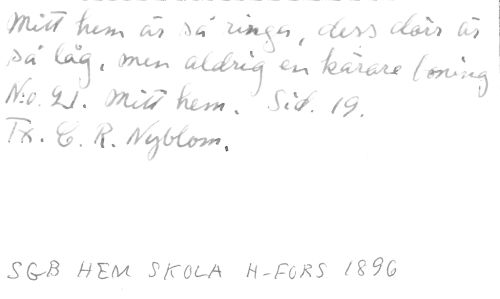 Mitt hem är så ringa, dess dörr är
så låg, men aldrig en kärare
No. 21. Mitt hem. Sid. 19.
Tx. C. R. Nyblom.
SGB HEM SKOLA H-FORS 1896